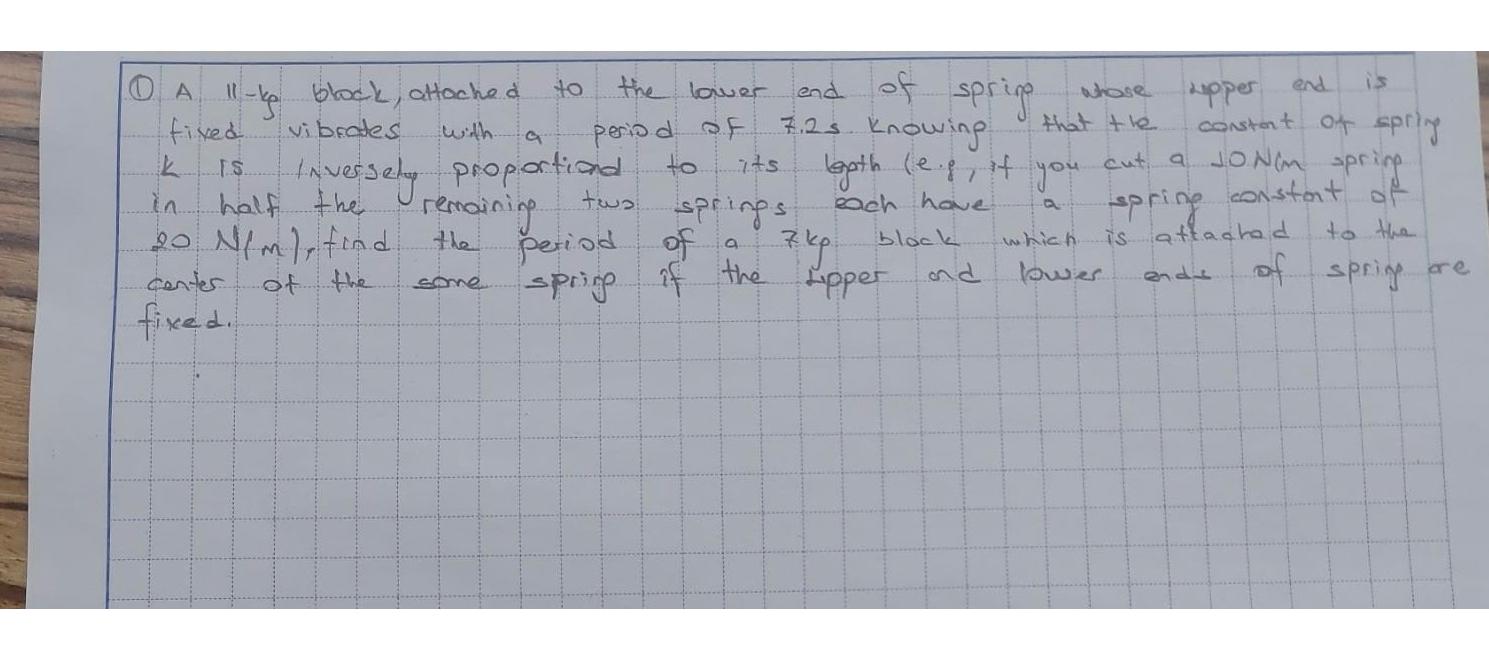 ① A 11-kg block, attached to the lower end of spring whose upper end is
fixed vibrates with a period of 7.2s. Knowing that the constant of spring
k is inversely proportional to its length (e.g, if you cut a 10 N/m spring
in half the remaining two springs each have a spring constant of
20 N/m), find the period of a 7kg block which is attached to the
center of the same spring if the upper and lower ends of spring are
fixed.